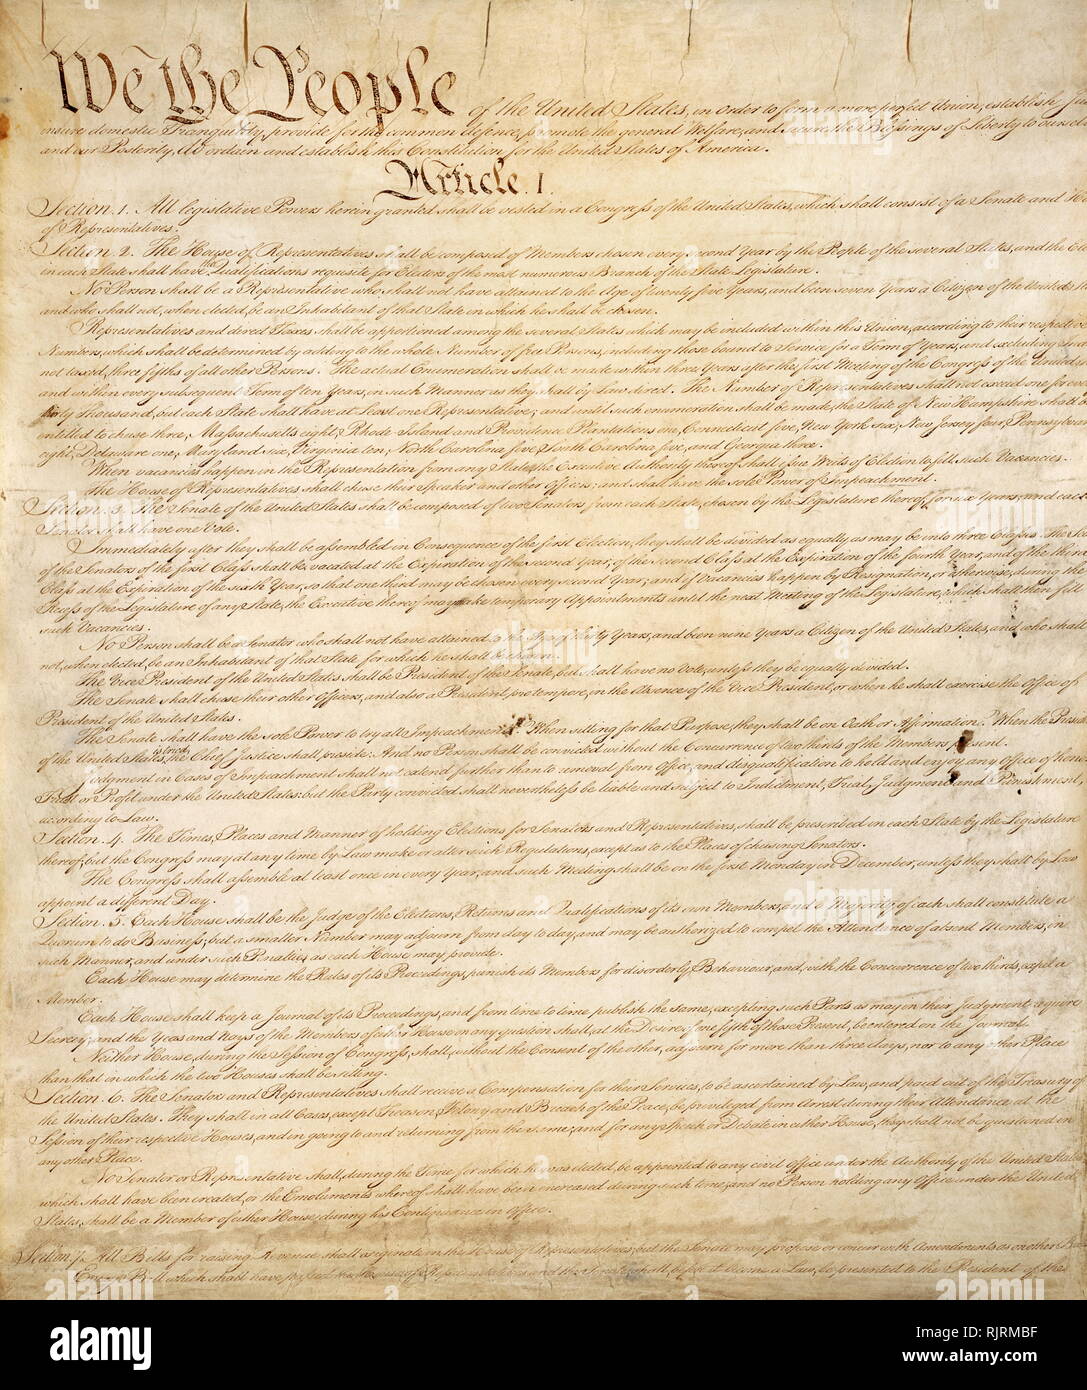 We the People of the United States, in Order to form a more perfect Union, establish
insure domestic Tranquility, provide for the common defence, promote the general Welfare, and secure the Blessings of Liberty to
and our Posterity, do ordain and establish this Constitution for the United States of America.
Article. I.
Section. 1. All legislative Powers herein granted shall be vested in a Congress of the United States, which shall consist of a Senate and
of Representatives.
Section. 2. The House of Representatives shall be composed of Members chosen every second Year by the People of the several States, and the
in each State shall have the Qualifications requisite for Electors of the most numerous Branch of the State Legislature.
No Person shall be a Representative who shall not have attained to the Age of twenty five Years, and been seven Years a Citizen of the United
and who shall not, when elected, be an Inhabitant of that State in which he shall be chosen.
Representatives and direct Taxes shall be apportioned among the several States which may be included within this Union, according to their
Numbers, which shall be determined by adding to the whole Number of free Persons, including those bound to Service for a Term of Years, and excluding
not taxed, three fifths of all other Persons. The actual Enumeration shall be made within three Years after the first Meeting of the Congress of the United
and within every subsequent Term of ten Years, in such Manner as they shall by Law direct. The Number of Representatives shall not exceed one for
thirty Thousand, but each State shall have at Least one Representative; and until such enumeration shall be made, the State of New Hampshire shall be
entitled to chuse three, Massachusetts eight, Rhode-Island and Providence Plantations one, Connecticut five, New-York six, New Jersey four,
eight, Delaware one, Maryland six, Virginia ten, North Carolina five, South Carolina five, and Georgia three.
When vacancies happen in the Representation from any State, the Executive Authority thereof shall issue Writs of Election to fill such Vacancies.
The House of Representatives shall chuse their Speaker and other Officers; and shall have the sole Power of Impeachment.
Section. 3. The Senate of the United States shall be composed of two Senators from each State, chosen by the Legislature thereof, for six Years; and each
Senator shall have one Vote.
Immediately after they shall be assembled in Consequence of the first Election, they shall be divided as equally as may be into three Classes. The
of the Senators of the first Class shall be vacated at the Expiration of the second Year, of the second Class at the Expiration of the fourth Year, and of the third
Class at the Expiration of the sixth Year, so that one third may be chosen every second Year; and if Vacancies happen by Resignation, or otherwise, during the
Recess of the Legislature of any State, the Executive thereof may make temporary Appointments until the next Meeting of the Legislature, which shall then fill
such Vacancies.
No Person shall be a Senator who shall not have attained to the Age of thirty Years, and been nine Years a Citizen of the United States, and who shall
not, when elected, be an Inhabitant of that State for which he shall be chosen.
The Vice President of the United States shall be President of the Senate, but shall have no Vote, unless they be equally divided.
The Senate shall chuse their other Officers, and also a President pro tempore, in the Absence of the Vice President, or when he shall exercise the Office of
President of the United States.
The Senate shall have the sole Power to try all Impeachments. When sitting for that Purpose, they shall be on Oath or Affirmation. When the
of the United States is tried, the Chief Justice shall preside: And no Person shall be convicted without the Concurrence of two thirds of the Members present.
Judgment in Cases of Impeachment shall not extend further than to removal from Office, and disqualification to hold and enjoy any Office of
Trust or Profit under the United States: but the Party convicted shall nevertheless be liable and subject to Indictment, Trial, Judgment and Punishment,
according to Law.
Section. 4. The Times, Places and Manner of holding Elections for Senators and Representatives, shall be prescribed in each State by the Legislature
thereof; but the Congress may at any time by Law make or alter such Regulations, except as to the Places of chusing Senators.
The Congress shall assemble at least once in every Year, and such Meeting shall be on the first Monday in December, unless they shall by Law
appoint a different Day.
Section. 5. Each House shall be the Judge of the Elections, Returns and Qualifications of its own Members, and a Majority of each shall constitute a
Quorum to do Business; but a smaller Number may adjourn from day to day, and may be authorized to compel the Attendance of absent Members, in
such Manner, and under such Penalties as each House may provide.
Each House may determine the Rules of its Proceedings, punish its Members for disorderly Behaviour, and, with the Concurrence of two thirds, expel a
Member.
Each House shall keep a Journal of its Proceedings, and from time to time publish the same, excepting such Parts as may in their Judgment require
Secrecy; and the Yeas and Nays of the Members of either House on any question shall, at the Desire of one fifth of those Present, be entered on the Journal.
Neither House, during the Session of Congress, shall, without the Consent of the other, adjourn for more than three days, nor to any other Place
than that in which the two Houses shall be sitting.
Section. 6. The Senators and Representatives shall receive a Compensation for their Services, to be ascertained by Law, and paid out of the Treasury of
the United States. They shall in all Cases, except Treason, Felony and Breach of the Peace, be privileged from Arrest during their Attendance at the
Session of their respective Houses, and in going to and returning from the same; and for any Speech or Debate in either House, they shall not be questioned in
any other Place.
No Senator or Representative shall, during the Time for which he was elected, be appointed to any civil Office under the Authority of the United States,
which shall have been created, or the Emoluments whereof shall have been encreased during such time; and no Person holding any Office under the United
States, shall be a Member of either House during his Continuance in Office.
Section. 7. All Bills for raising Revenue shall originate in the House of Representatives; but the Senate may propose or concur with Amendments as on other
Every Bill which shall have passed the House of Representatives and the Senate, shall, before it become a Law, be presented to the President of the
alamy stock photo
alamy
Image ID: RJRMBF
www.alamy.com